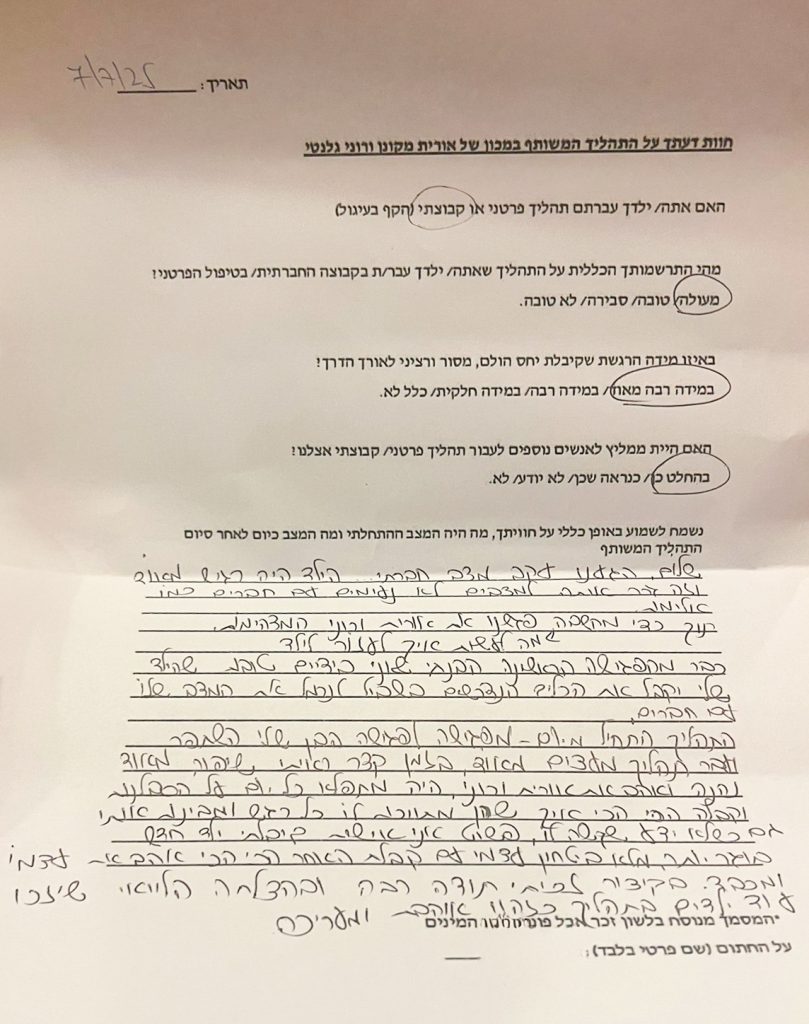 תאריך: 7/7/25
חוות דעתך על התהליך המשותף במכון של אורית מקונן ורוני גלנטי
האם אתה/ ילדך עברתם תהליך פרטני או קבוצתי (הקף בעיגול)
מהי התרשמותך הכללית על התהליך שאתה/ ילדך עבר/ת בקבוצה החברתית/ בטיפול הפרטני?
מעולה/ טובה/ סבירה/ לא טובה.
באיזו מידה הרגשת שקיבלת יחס הולם, מסור ורציני לאורך הדרך?
במידה רבה מאוד/ במידה רבה/ במידה חלקית/ כלל לא.
האם היית ממליץ לאנשים נוספים לעבור תהליך פרטני/ קבוצתי אצלנו?
בהחלט כן/ כנראה שכן/ לא יודע/ לא.
נשמח לשמוע באופן כללי על חוויתך, מה היה המצב ההתחלתי ומה המצב כיום לאחר סיום
התהליך המשותף
שלום, הגענו עקב מצב חברתי. הילד היה רגיש מאוד
וזה גרר אותו למצבים לא נעימים עם חברים כמו
אלימות.
תוך כדי מחשבה פגשנו את אורית ורוני המדהימות.
מה לעשות איך לעזור לילד
כבר מהפגישה הראשונה הבנתי שאני בידיים טובות שהילד
שלי יקבל את הכלים הנדרשים בשביל לנהל את המצב שלו
עם חברים.
התהליך התחיל מ.יום - מפגישה לפגישה הבן שלי השתפר
ועבר תהליך מעצים מאוד, בזמן קצר ראיתי שיפור מאוד
נהנה ואוהב את אורית ורוני, היה מתפלא כל יום על הסבלנות
וקבלה הכי הכי איך שהן מחוברות לו כל רגש ומבינות אותי
גם כשלא ידע שקשה לו, בפשטות אני אישית קיבלתי ילד חדש
בוגר יותר, מלא ביטחון עצמי עם קבלת האחר הכי הכי אוהב את עצמו
ומכבד. בקיצור זכיתי תודה רבה ובהצלחה הלוואי שיזכו
עוד ילדים בתהליך כזה אוהבת ומעריכה
*המסמך מנוסח בלשון זכר אבל פונה המינים
על החתום (שם פרטי בלבד):